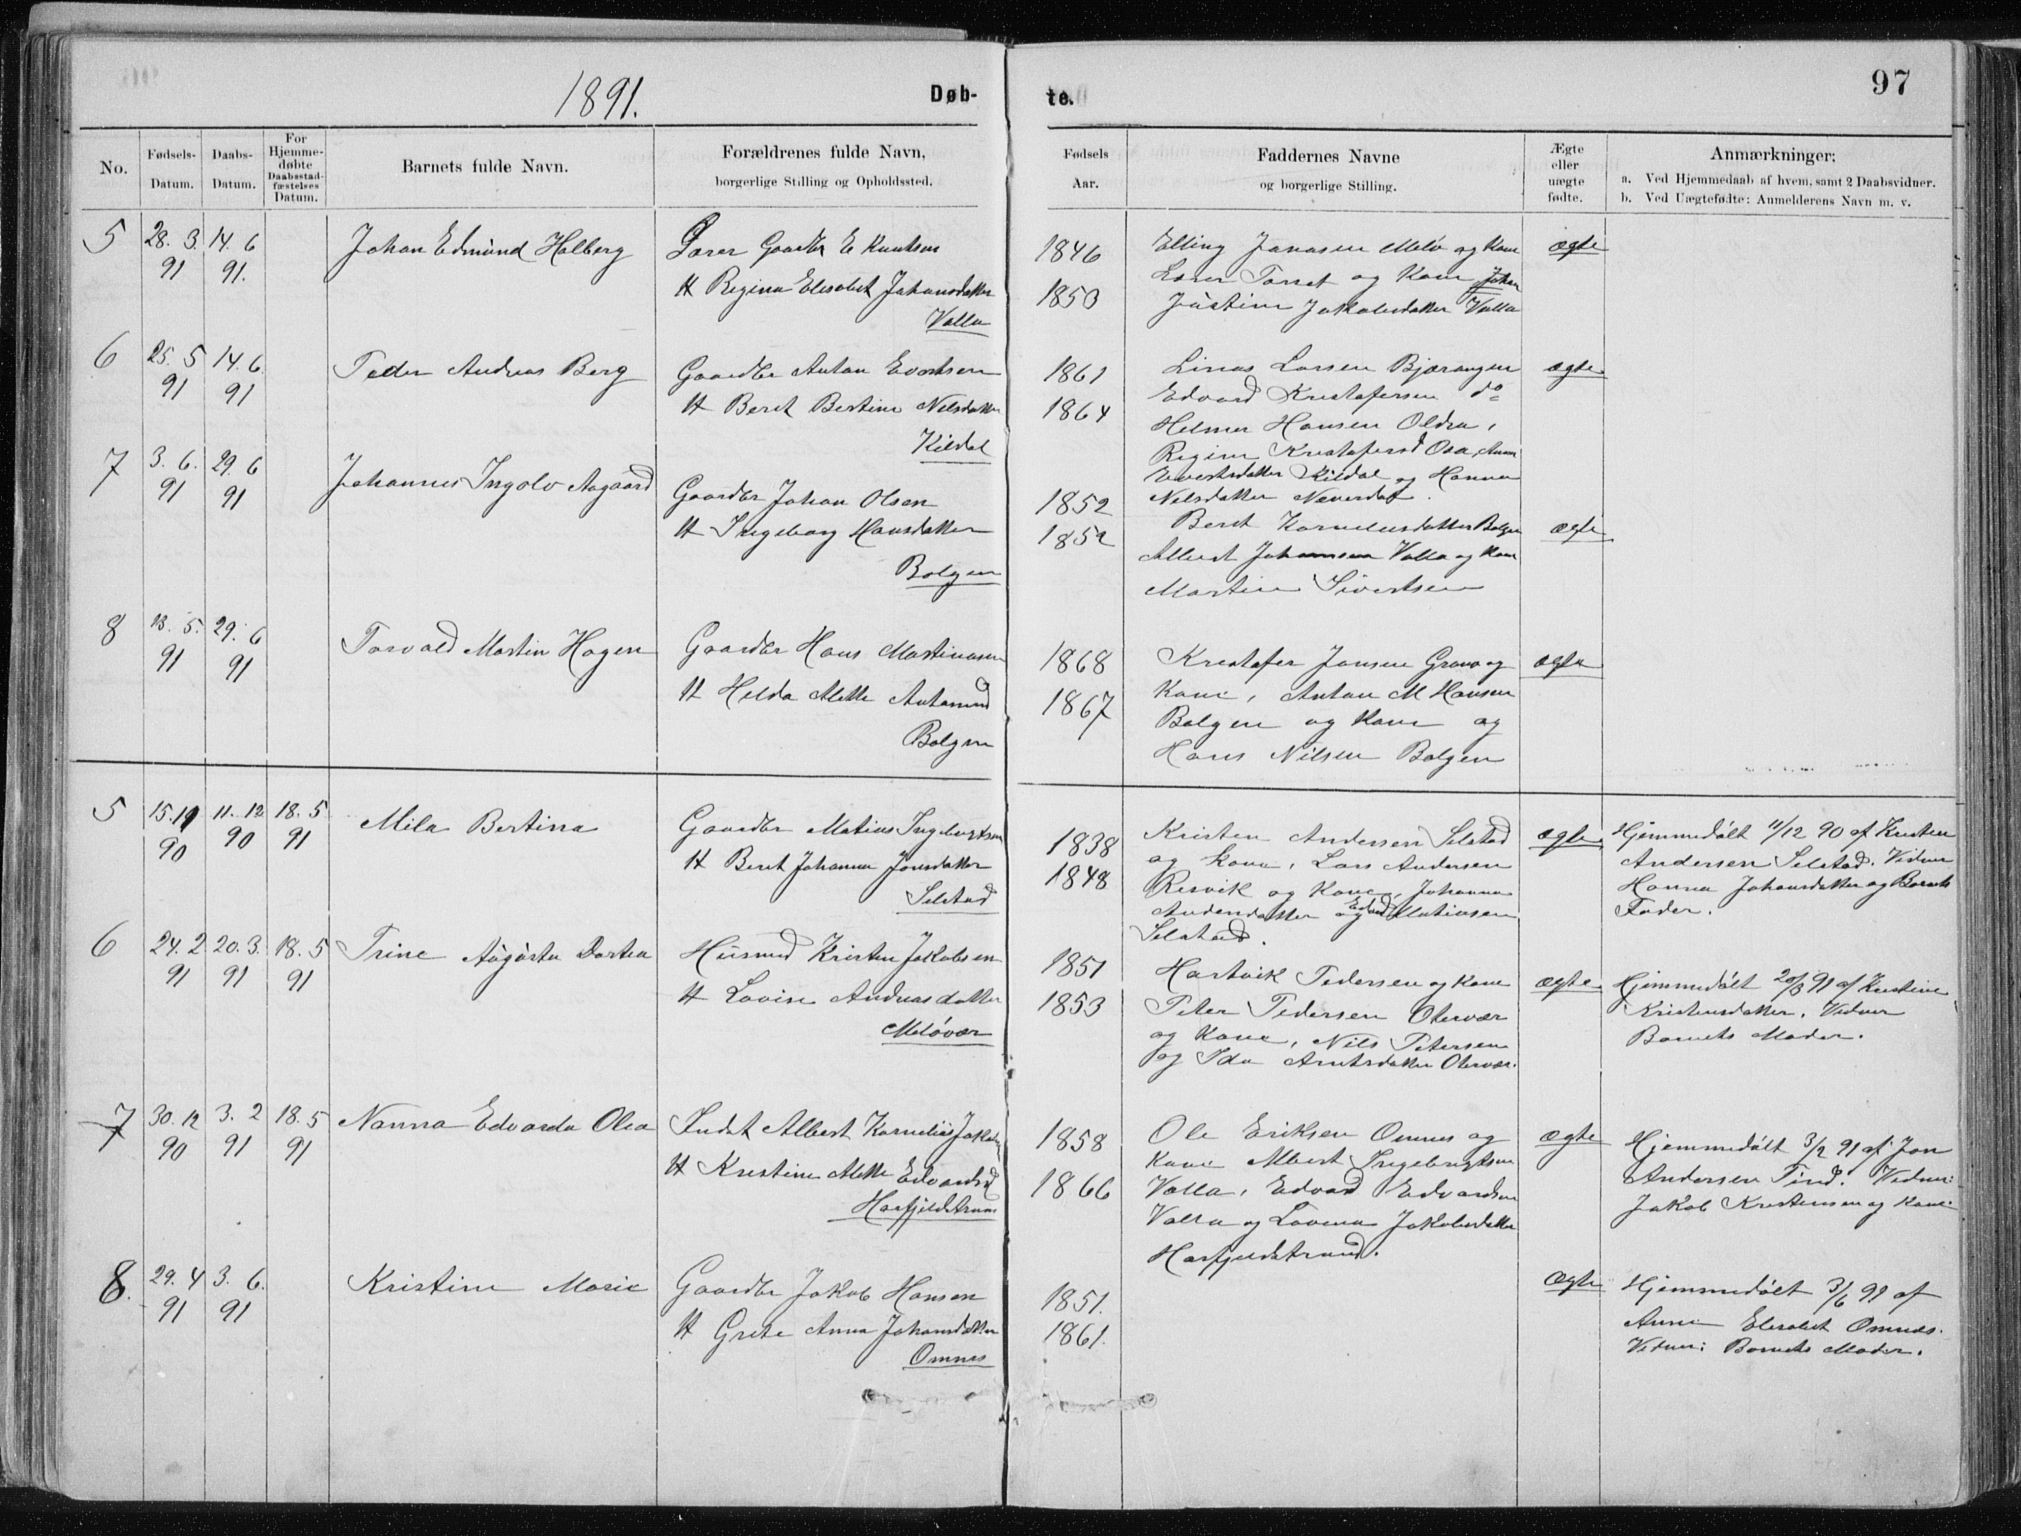 1891.
Døb-
te.
97
No.
Fødsels-
Datum.
Daabs-
Datum.
For
Hjemme-
døbte
Daabsstad-
fæstelses
Datum.
Barnets fulde Navn.
Forældrenes fulde Navn,
borgerlige Stilling og Opholdssted.
Fødsels
Aar.
Faddernes Navne
og borgerlige Stilling.
Ægte
eller
uægte
fødte.
Anmærkninger:
a. Ved Hjemmedaab af hvem, samt 2 Daabsvidner.
b. Ved Uægtefødte: Anmelderens Navn m. v.
5
28. 3. 91
14. 6 91.
Johan Edmund Halberg
Lærer Gaardbr E Knutsen
H Regina Elesabet Johansdatter
Valla
1846
1850
Elling Janasen Melø og Kone
Lærer Torset og Kone Johan
Justine Jakobsdatter Valla
ægte
6
25. 5 91
14. 6. 91
Peder Andreas Berg
Gaardbr Anton Evertsen
H Beret Bertine Nelsdatter
Kildal
1861
1864
Linas Larsen Bjærangen
Edvard Krestofersen do
Helmer Hansen Oldra,
Regine Krestofersd Osa,
Evertsdatter Kildal og Hanna
Nelsdatter Neverdal.
ægte
7
3. 6. 91
29. 6 91
Johannes Ingolv Aagaard
Gaardbr Johan Olsen
H Ingeborg Hansdatter
Bolgen
1852
1852
Beret Korneliusdatter Bolgen
Albert Johansen Valla og Kone
Martin Sivertsen
ægte
8
13. 5. 91
29. 6 91
Torvald Martin Hagen
Gaardbr Hans Martinusen
H Hilda Mette Antonsend
Bolgen
1868
1867
Krestofer Jansen Grønø og
Kone, Anton M Hansen
Bolgen og Kone og
Hans Nilsen Bolgen
ægte
5
15. 11 90
11. 12 90
18. 5 91
Mila Bertina
Gaardbr Matius Ingebrigtsen
H Beret Johanna Jonsdatter
Selstad
1838
1848
Kristen Andersen Selstad
og Kone, Lars Andersen
Resvik og Kone, Johanna
Andersdatter og Edvard Matiusen
Selstad.
ægte
Hjemmedøbt 11/12 90 af Kristen
Andersen Selstad. Vidner
Hanna Johansdatter og Barnets
Fader.
6
24. 2 91
20. 3. 91
18. 5 91
Trine Augusta Dortea
Husmd Kristen Jakobsen
H Lovise Andreasdatter
Meløvær
1851
1853
Hartvik Pedersen og Kone
Peter Pedersen Otervær
og Kone, Nils Petersen
og Ida Arntsdatter Otervær.
ægte
Hjemmedøbt 20/3 91 af Kristine
Kristensdatter. Vidner
Barnets Moder.
7
30. 12 90
3. 2 91
18. 5 91
Nanna Edvarda Olea
Indst Albert Kornelius Jakobs
H Kristine Mette Edvardsd
Havfjeldstrand
1858
1866
Ole Eriksen Omnes og
Kone Albert Ingebrigtsen
Valla, Edvard Edvardsen
Valla og Lovina Jakobsdatter
Havfjeldstrand.
ægte
Hjemmedøbt 3/2 91 af Jon
Andersen Find. Vidner:
Jakob Kristensen og Kone
8.
29. 4 91
3. 6. 91
Kristine Marie
Gaardbr Jakob Hansen
H Grete Anna Johansdatter
Omnes
1851.
1861.
ægte
Hjemmedøbt 3/6 91 af
Anne Elesabet Omnes.
Vidner: Barnets Moder.